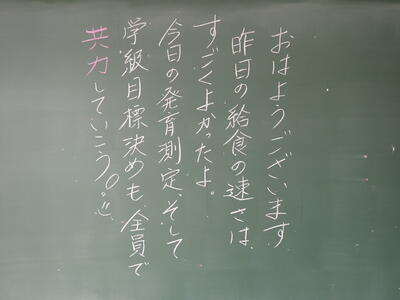 おはようございます
昨日の給食の速さは、
すごくよかったよ。
今日の発育測定、そして
学級目標決めも、全員で
共力していこう!